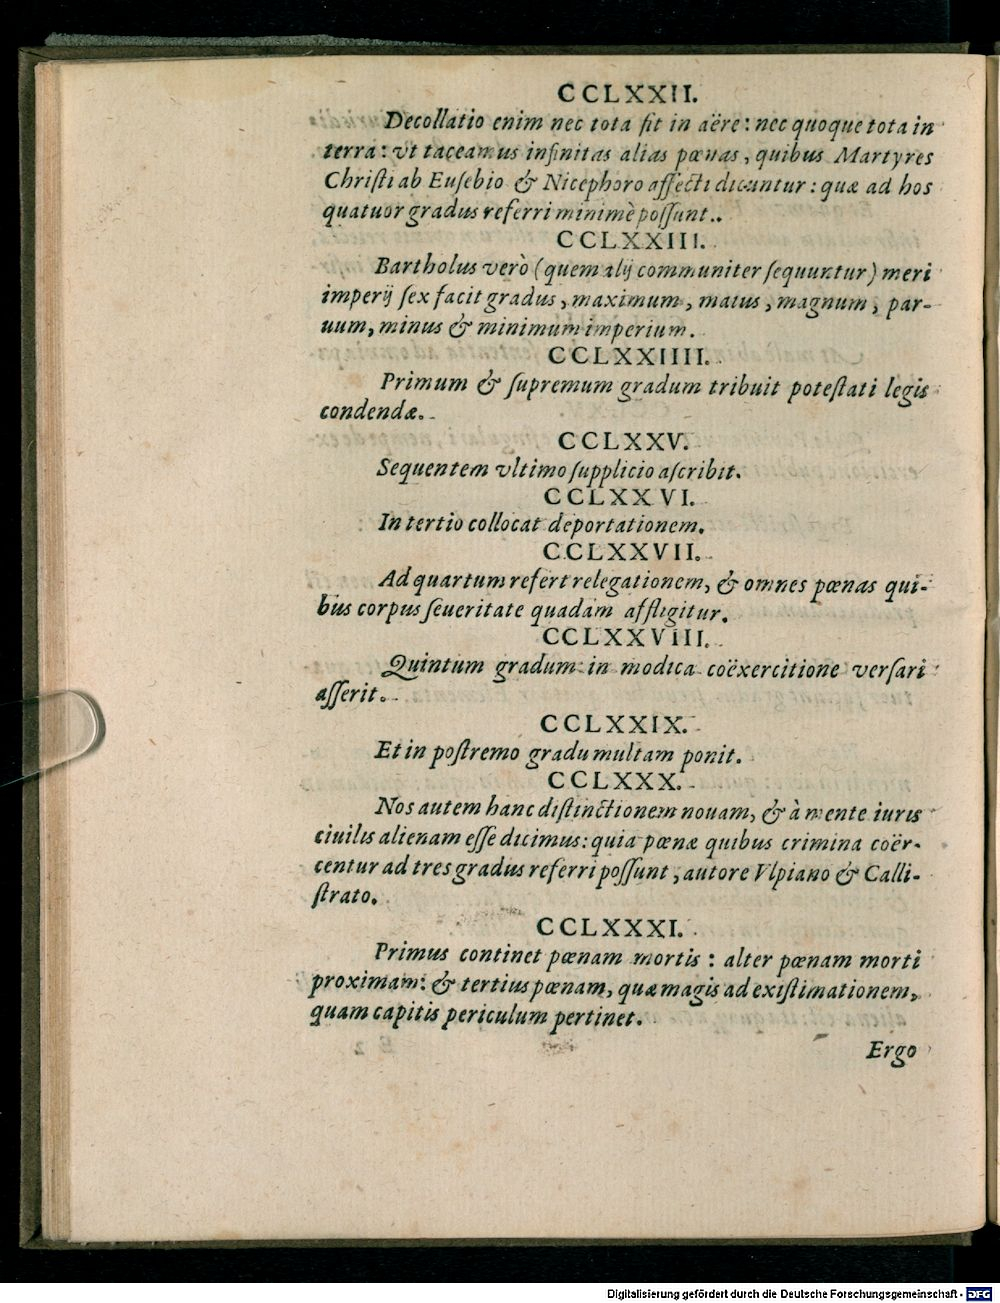 CCLXXII.
Decollatio enim nec tota fit in aëre: nec quoque tota in
terra: vt taceamus infinitas alias pœnas, quibus Martyres
Chriſti ab Euſebio & Nicephoro affecti dicuntur: quæ ad hos
quatuor gradus referri minimè poſſunt.
CCLXXIII.
Bartholus verò (quem alij communiter ſequuntur) meri
imperij ſex facit gradus, maximum, maius, magnum, par-
uum, minus & minimum imperium.
CCLXXIIII.
Primum & ſupremum gradum tribuit poteſtati legis
condendæ.
CCLXXV.
Sequentem vltimo ſupplicio aſcribit.
CCLXXVI.
In tertio collocat deportationem.
CCLXXVII.
Ad quartum refert relegationem, & omnes pœnas qui-
bus corpus ſeueritate quadam affligitur.
CCLXXVIII.
Quintum gradum in modica coëxercitione verſari
aſſerit.
CCLXXIX.
Et in poſtremo gradu multam ponit.
CCLXXX.
Nos autem hanc diſtinctionem nouam, & à mente iuris
ciuilis alienam eſſe dicimus: quia pœnæ quibus crimina coër-
centur ad tres gradus referri poſſunt, autore Vlpiano & Calli-
ſtrato.
CCLXXXI.
Primus continet pœnam mortis: alter pœnam morti
proximam: & tertius pœnam, quæ magis ad exiſtimationem,
quam capitis periculum pertinet.
Ergo
Digitalisierung gefördert durch die Deutsche Forschungsgemeinschaft - DFG